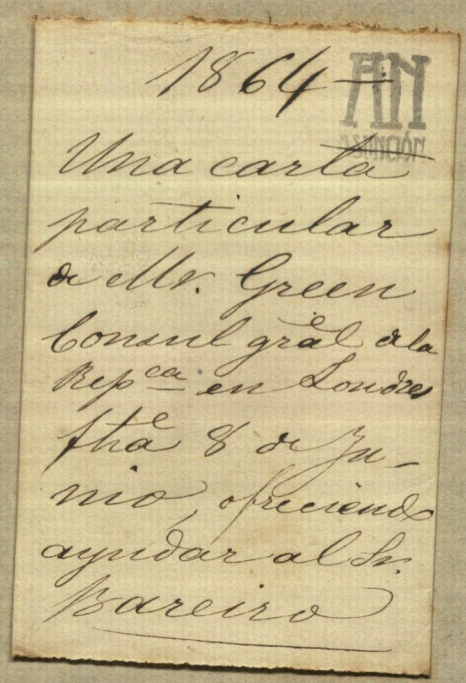 1864
AN
ASUNCIÓN
Una carta
particular
de Mr. Green
Consul gral de la
Repca en Londres
fha 8 de Ju-
nio, ofreciendo
ayudar al Sr.
Bareiro